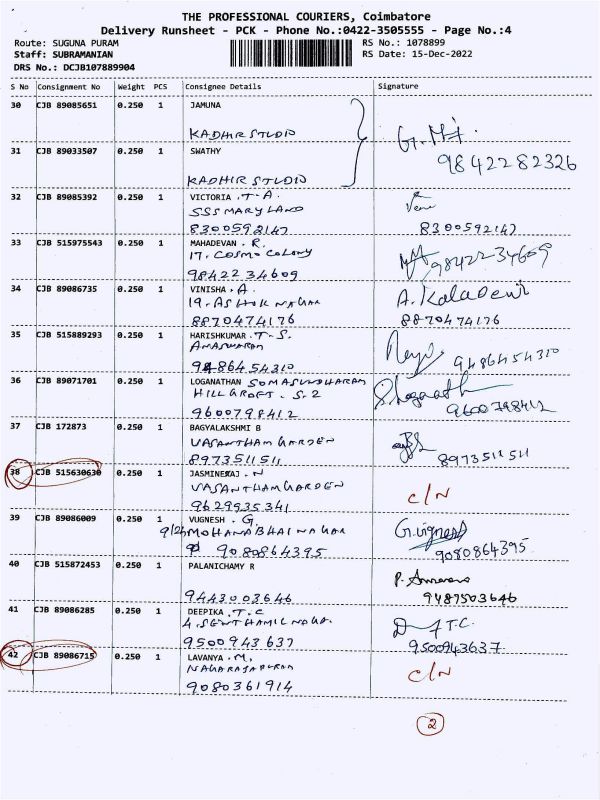 THE PROFESSIONAL COURIERS, Coimbatore
Delivery Runsheet - PCK - Phone No.:0422-3505555 - Page No.:4
Route: SUGUNA PURAM RS No.: 1078899
Staff: SUBRAMANIAN RS Date: 15-Dec-2022
DRS No.: DCJB107889904
S No Consignment No Weight PCS Consignee Details Signature
30 CJB 89085651 0.250 1 JAMUNA
KADHIR STUDIO
9842282326
31 CJB 89033507 0.250 1 SWATHY
KADHIR STUDIO
32 CJB 89085392 0.250 1 VICTORIA . T. A.
SSS MARYLAND
8300592147 8300592147
33 CJB 515975543 0.250 1 MAHADEVAN . R.
17. COSMO COLONY
9842234609 9842234609
34 CJB 89086735 0.250 1 VINISHA . A.
19. ASHOK NAGAR A. Kaladevi
8870474176 8870474176
35 CJB 515889293 0.250 1 HARISHKUMAR . T. S.
9486454310 9486454310
36 CJB 89071701 0.250 1 LOGANATHAN SOMASUNDHARAM
HILL CROFT . S. 2
9600798412 9600798412
37 CJB 172873 0.250 1 BAGYALAKSHMI B
VASANTHAM GARDEN
8973511511 8973511511
38 CJB 515630630 0.250 1 JASMINERAJ . N
VASANTHAM GARDEN C/N
9629935341
39 CJB 89086009 0.250 1 VUGNESH . G.
MOHANABHAI NAGAR G. Vignesh
9080864395 9080864395
40 CJB 515872453 0.250 1 PALANICHAMY R
9443003646 9487503646
41 CJB 89086285 0.250 1 DEEPIKA . T. C
4. SENTHAMIL NAGAR. T.C.
9500943637 9500943637
42 CJB 89086715 0.250 1 LAVANYA . M.
NAGARAJAPURAM C/N
9080361914
2